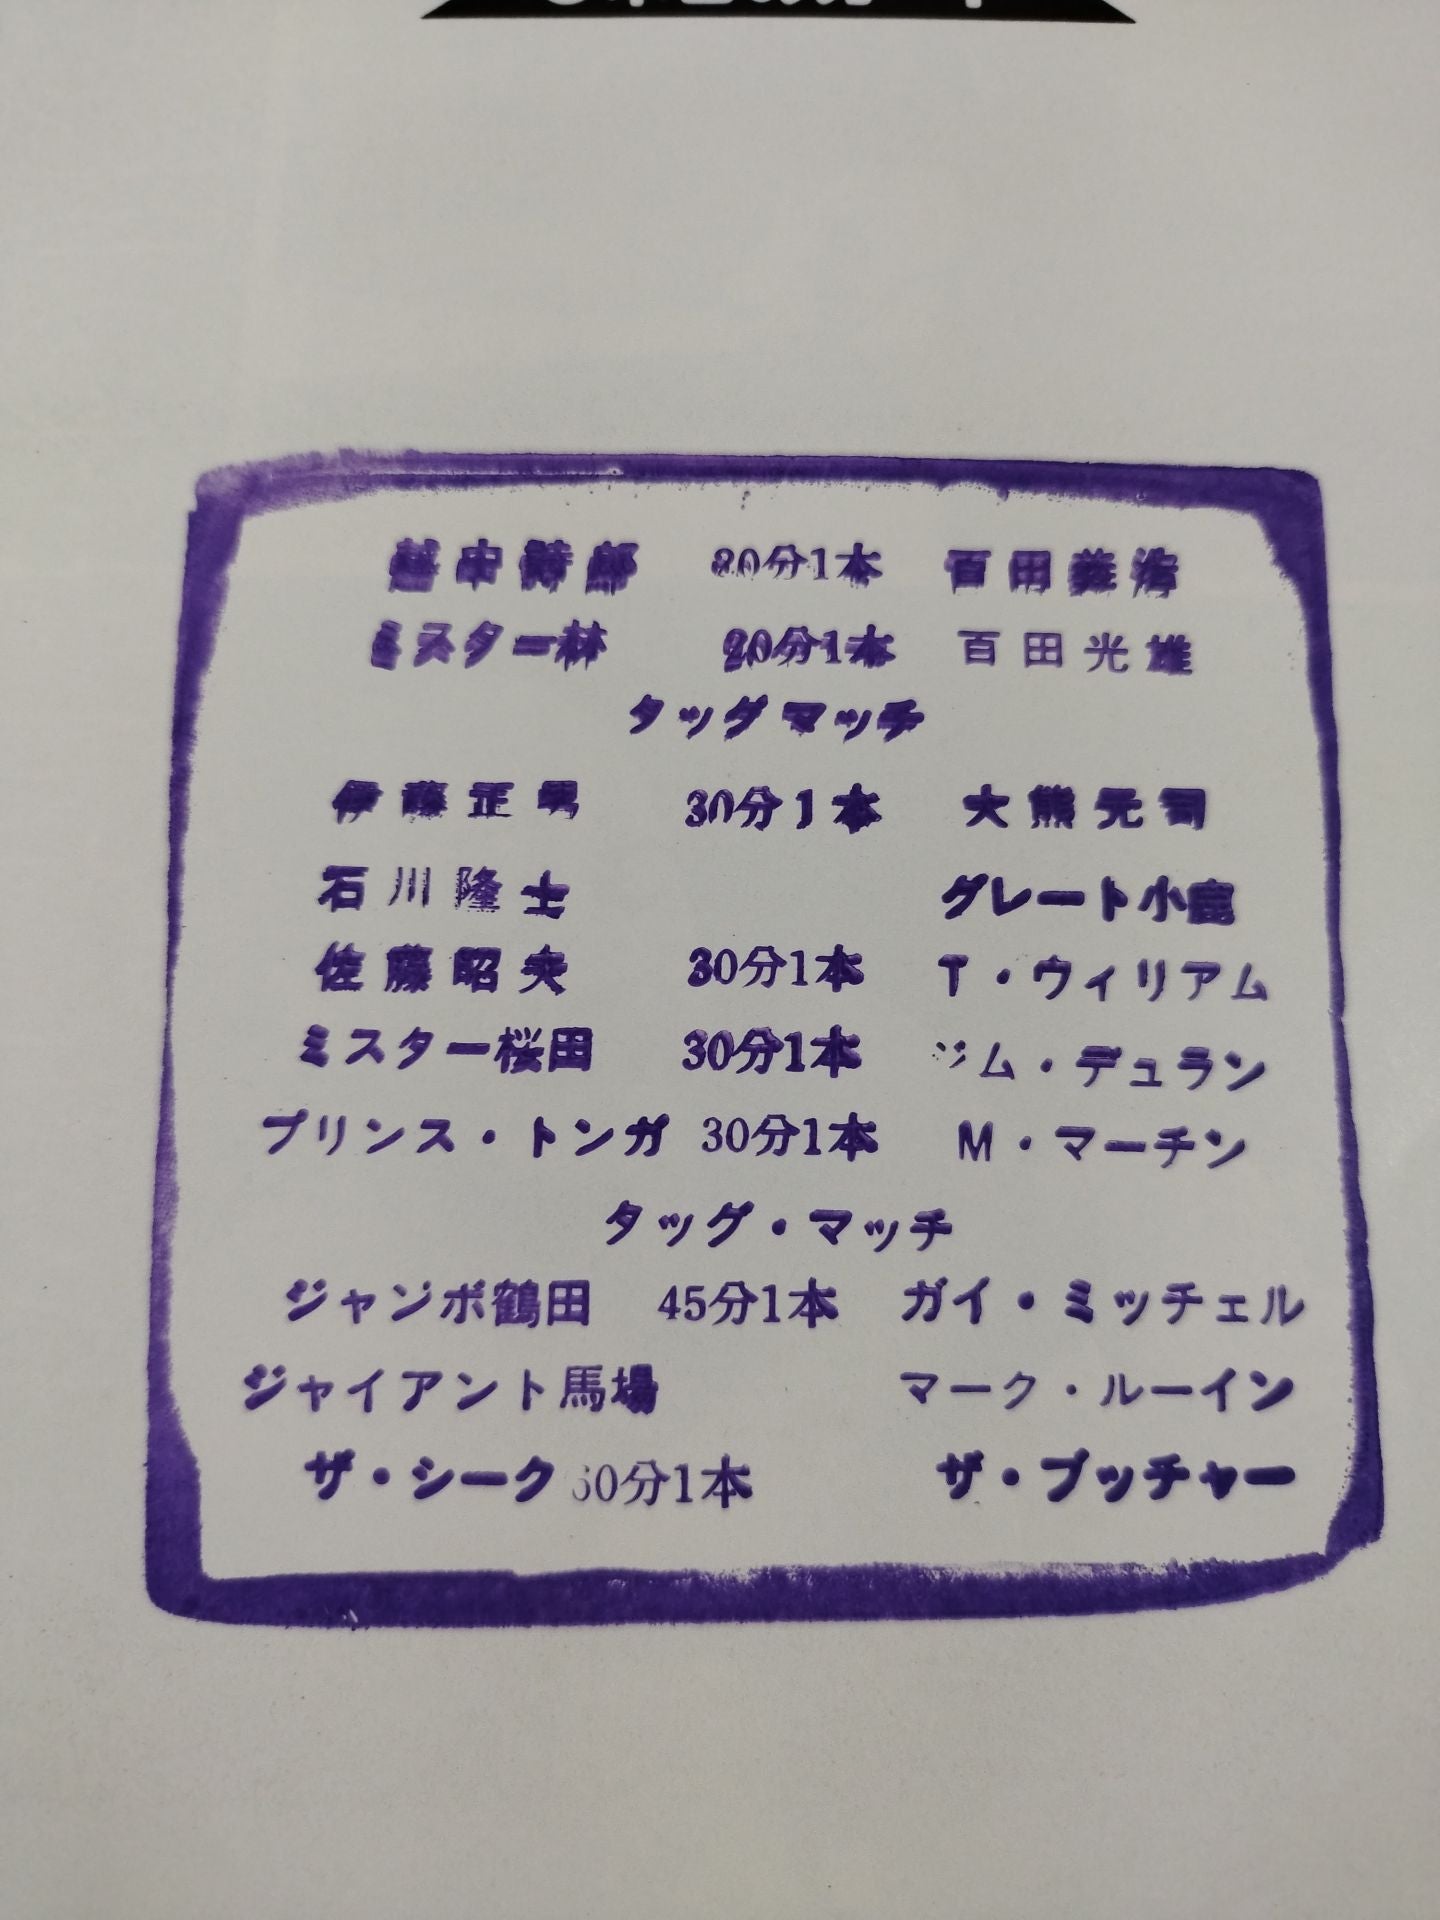 越中詩郎 20分1本 百田義浩
ミスター林 20分1本 百田光雄
タッグマッチ
伊藤正男 30分1本 大熊元司
石川隆士 グレート小鹿
佐藤昭夫 30分1本 T・ウィリアム
ミスター桜田 30分1本 ジム・デュラン
プリンス・トンガ 30分1本 M・マーチン
タッグ・マッチ
ジャンボ鶴田 45分1本 ガイ・ミッチェル
ジャイアント馬場 マーク・ルーイン
ザ・シーク 60分1本 ザ・ブッチャー